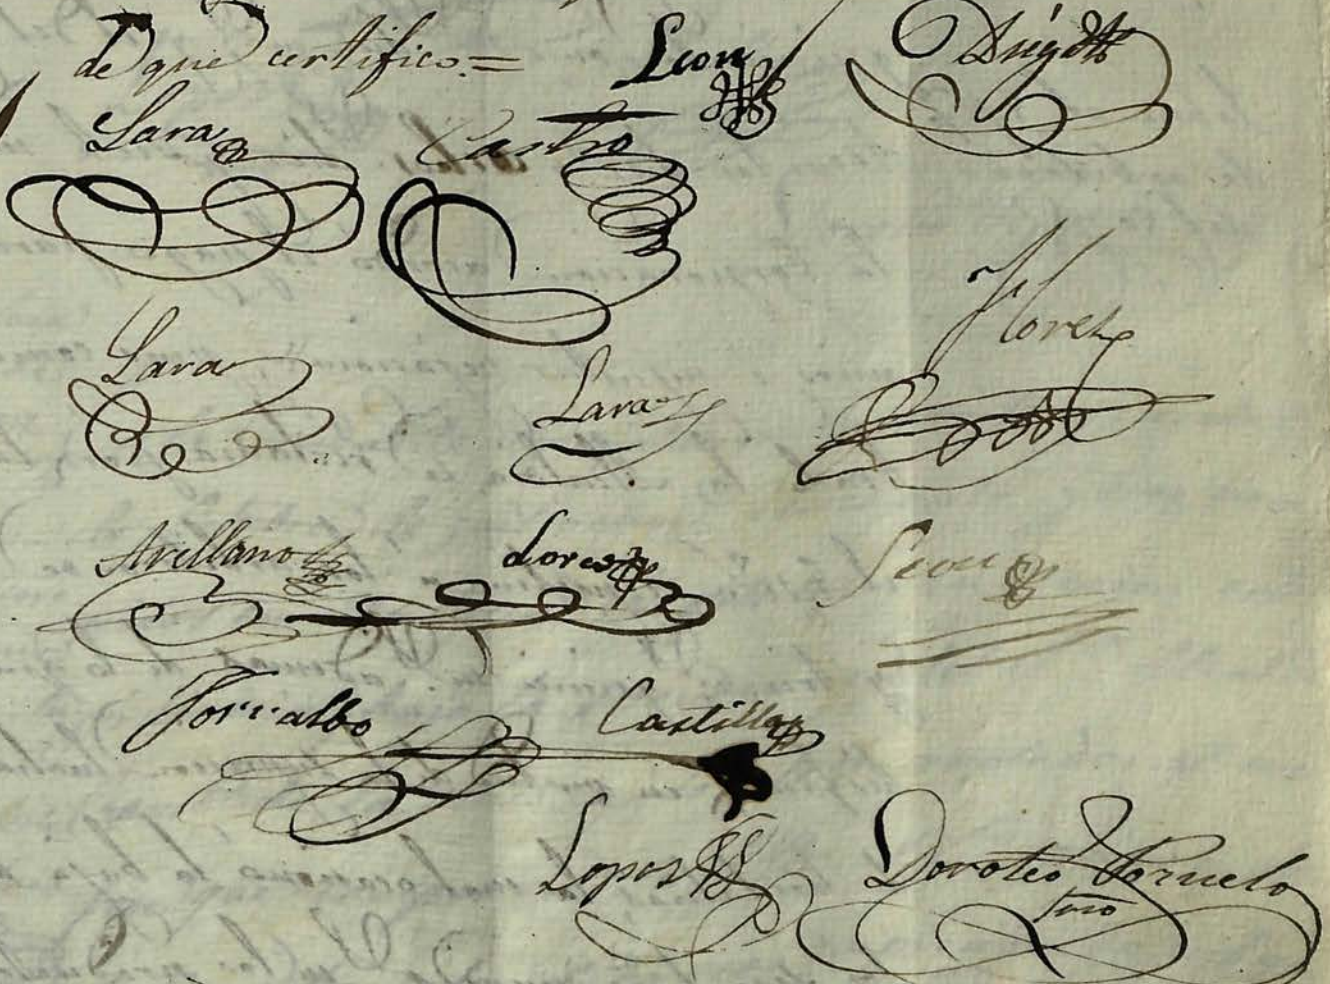 de que certifico.= Leon
Lara Castro
Lara Lara Flores
Arellano Lores Leon
Torralbo Castilla
Lopes Doroteo
srio